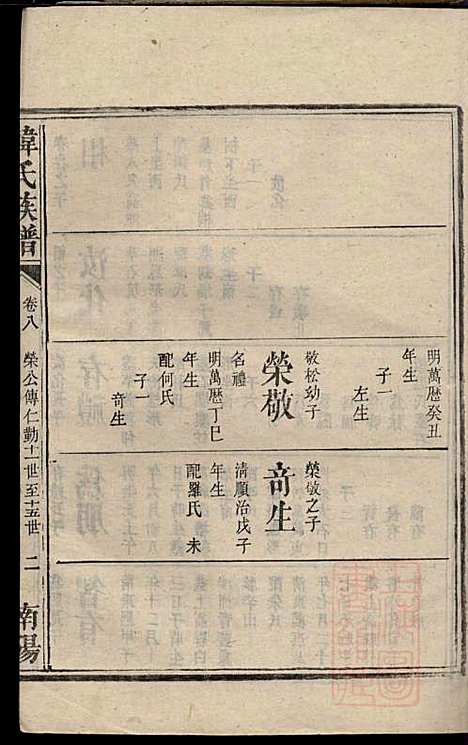 明萬曆癸丑
年生
子一
左生
榮敬
敬松幼子
名禮
明萬曆丁巳
年生
配何氏
子一
竒生
竒生
榮敬之子
清順治戊子
年生
配羅氏 未
韓氏族譜
卷八
榮公傳仁勤十一世至十五世
二
南陽